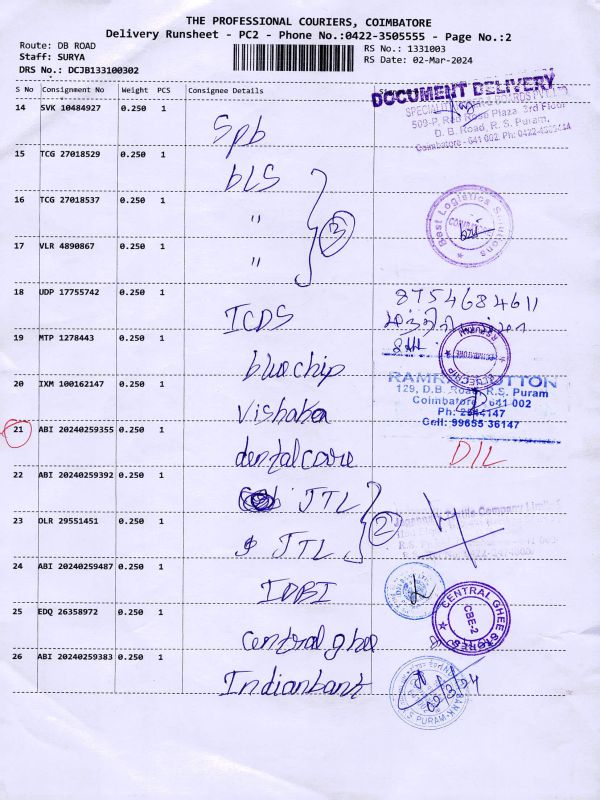 THE PROFESSIONAL COURIERS, COIMBATORE
Delivery Runsheet - PC2 - Phone No.:0422-3505555 - Page No.:2
Route: DB ROAD
Staff: SURYA
DRS No.: DCJB133100302
RS No.: 1331003
RS Date: 02-Mar-2024
S No Consignment No Weight PCS Consignee Details
DOCUMENT DELIVERY
509-P, Rab Rose Plaza 3rd Floor
D. B. Road, R. S. Puram,
Coimbatore - 641 002. Ph: 0422-
14 SVK 10484927 0.250 1 Spb
15 TCG 27018529 0.250 1 bLS
16 TCG 27018537 0.250 1 "
3
Best Logistics Solutions
17 VLR 4890867 0.250 1 "
18 UDP 17755742 0.250 1 ICDS
8754684611
19 MTP 1278443 0.250 1 bluechip
20 IXM 100162147 0.250 1 Vishaka
COTTON
129, D.B. Road, R.S. Puram
Coimbatore - 641 002
Ph: 2544147
Cell: 99655 36147
21 ABI 20240259355 0.250 1 dentalcare
DIL
22 ABI 20240259392 0.250 1 JTL
2
23 DLR 29551451 0.250 1 JTL
24 ABI 20240259487 0.250 1 IDBI
25 EDQ 26358972 0.250 1 Central ghee
CENTRAL GHEE STORES
CBE-2
26 ABI 20240259383 0.250 1 Indianbank
R.S PURAM